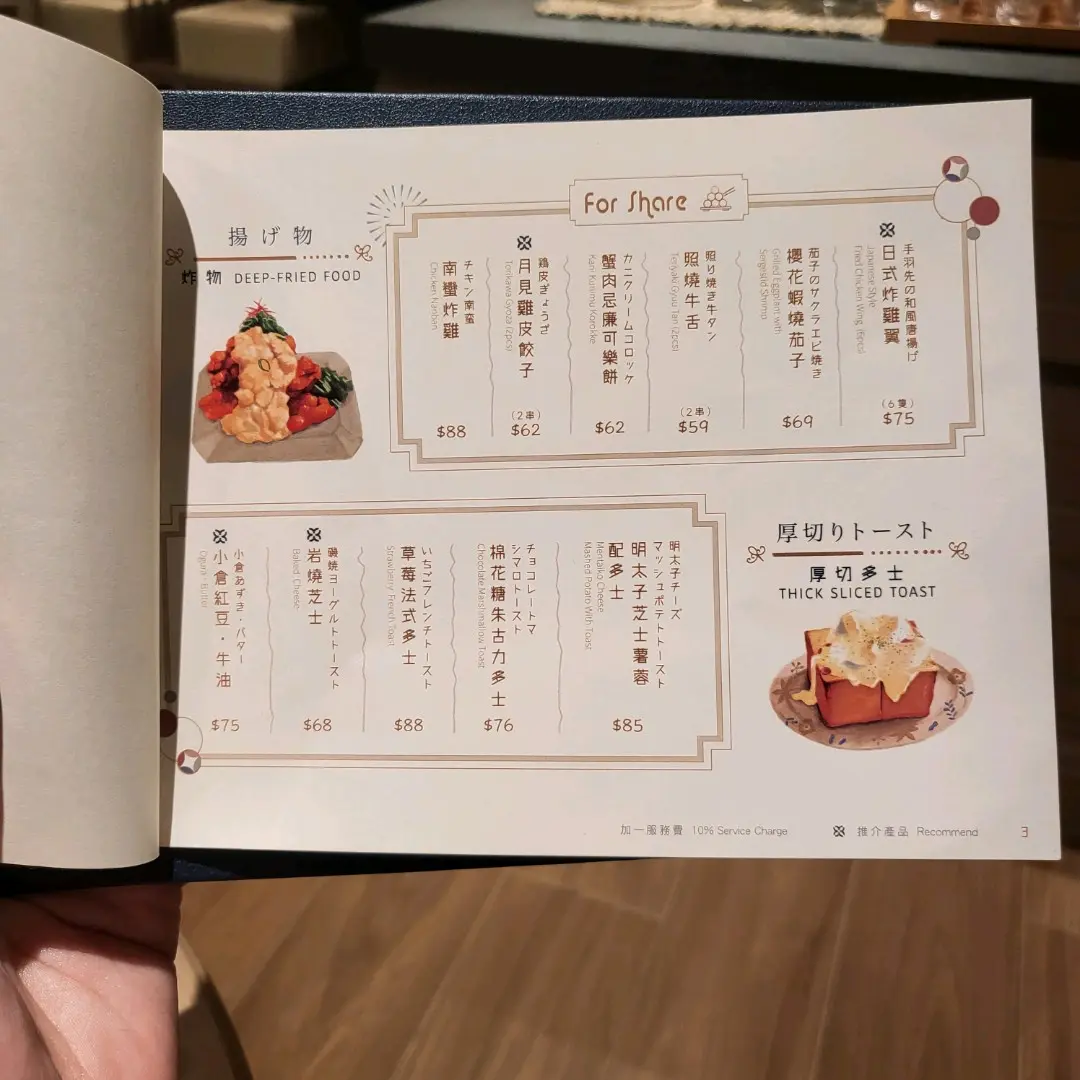 揚げ物
炸物 DEEP-FRIED FOOD
For Share
手羽先の和風唐揚げ
日式炸雞翼
Japanese Style
Fried Chicken Wing (6pcs)
(6隻)
$75
茄子のサクラエビ焼き
櫻花蝦燒茄子
Grilled Eggplant with
Sergestid Shrimp
$69
照り焼き牛タン
照燒牛舌
Teriyaki Gyuu Tan (2pcs)
(2串)
$59
カニクリームコロッケ
蟹肉忌廉可樂餅
Kani Kurimu Korokke
$62
鶏皮ぎょうざ
月見雞皮餃子
Torikawa Gyoza (2pcs)
(2串)
$62
チキン南蛮
南蠻炸雞
Chicken Nanban
$88
厚切りトースト
厚切多士
THICK SLICED TOAST
明太子チーズ
マッシュポテトトースト
明太子芝士薯蓉
配多士
Mentaiko Cheese
Mashed Potato With Toast
$85
チョコレートマ
シマロトースト
棉花糖朱古力多士
Chocolate Marshmallow Toast
$76
いちごフレンチトースト
草莓法式多士
Strawberry French Toast
$88
磯焼ヨーグルトトースト
岩燒芝士
Baked Cheese
$68
小倉あずき・バター
小倉紅豆・牛油
Ogura Butter
$75
加一服務費 10% Service Charge
推介產品 Recommend
3